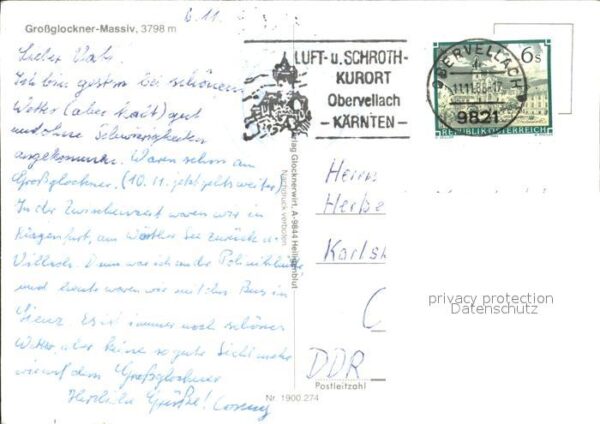 6.11.
Großglockner-Massiv, 3798 m
Lieber Vati!
Ich bin gestern bei schönem
Wetter (aber kalt) gut
und ohne Schwierigkeiten
angekommen. Waren schon am
Großglockner. (10.11. jetzt gehts weiter)
In der Zwischenzeit waren wir in
Klagenfurt, am Wörther See zurück ü.
Villach. Dann war ich an der
und heute waren wir mit dem Bus in
Lienz. Es ist immer noch schönes
Wetter, aber keine so gute Sicht mehr
wie auf dem Großglockner
Herzliche Grüße!
Verlag Glocknerwirt, A-9844 Heiligenblut
Nachdruck verboten
Nr. 1900.274
LUFT- u. SCHROTH-
KURORT
Obervellach
- KÄRNTEN -
OBERVELLACH
9821
6 S
REPUBLIK ÖSTERREICH
Herrn
Karlsh
C
DDR
Postleitzahl
privacy protection
Datenschutz